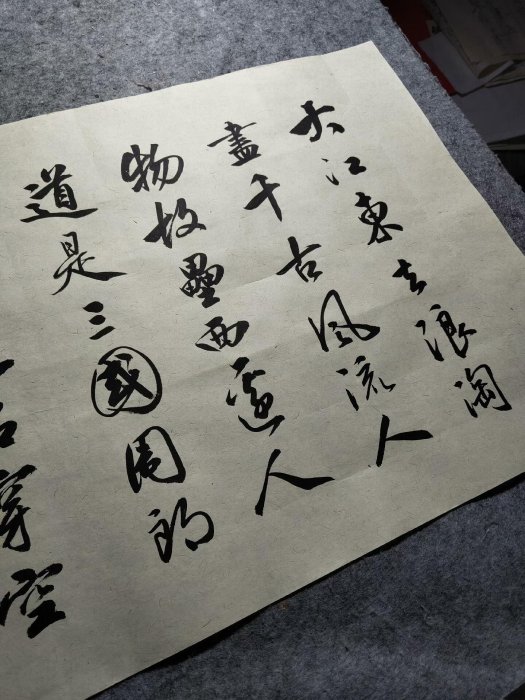 大江東去浪淘
盡千古風流人
物故壘西邊人
道是三國周郎
穿空